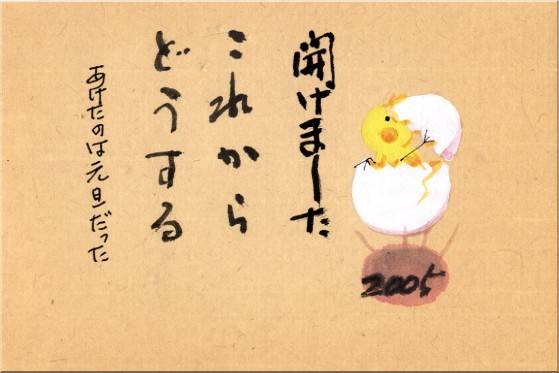 開けました
これから
どうする
あけたのは元旦だった
2005